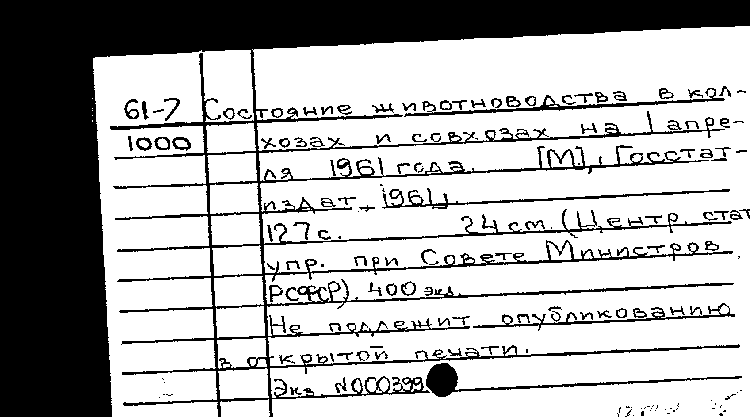 61-7 Состояние животноводства в кол-
1000 хозах и совхозах на 1 апре-
ля 1961 года. [М], Госстат-
издат, 1961.
127 с. 24 см. (Центр. стат
упр. при Совете Министров
РСФСР). 400 экз.
Не подлежит опубликованию
в открытой печати.
Экз. №000399